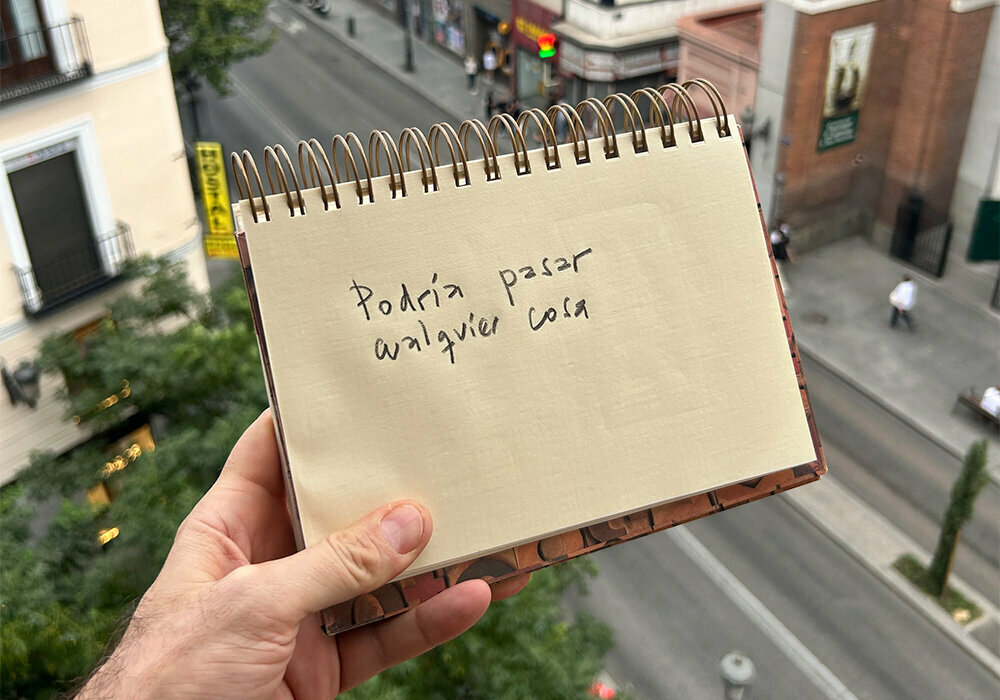 Podría pasar
cualquier cosa
HOSTAL